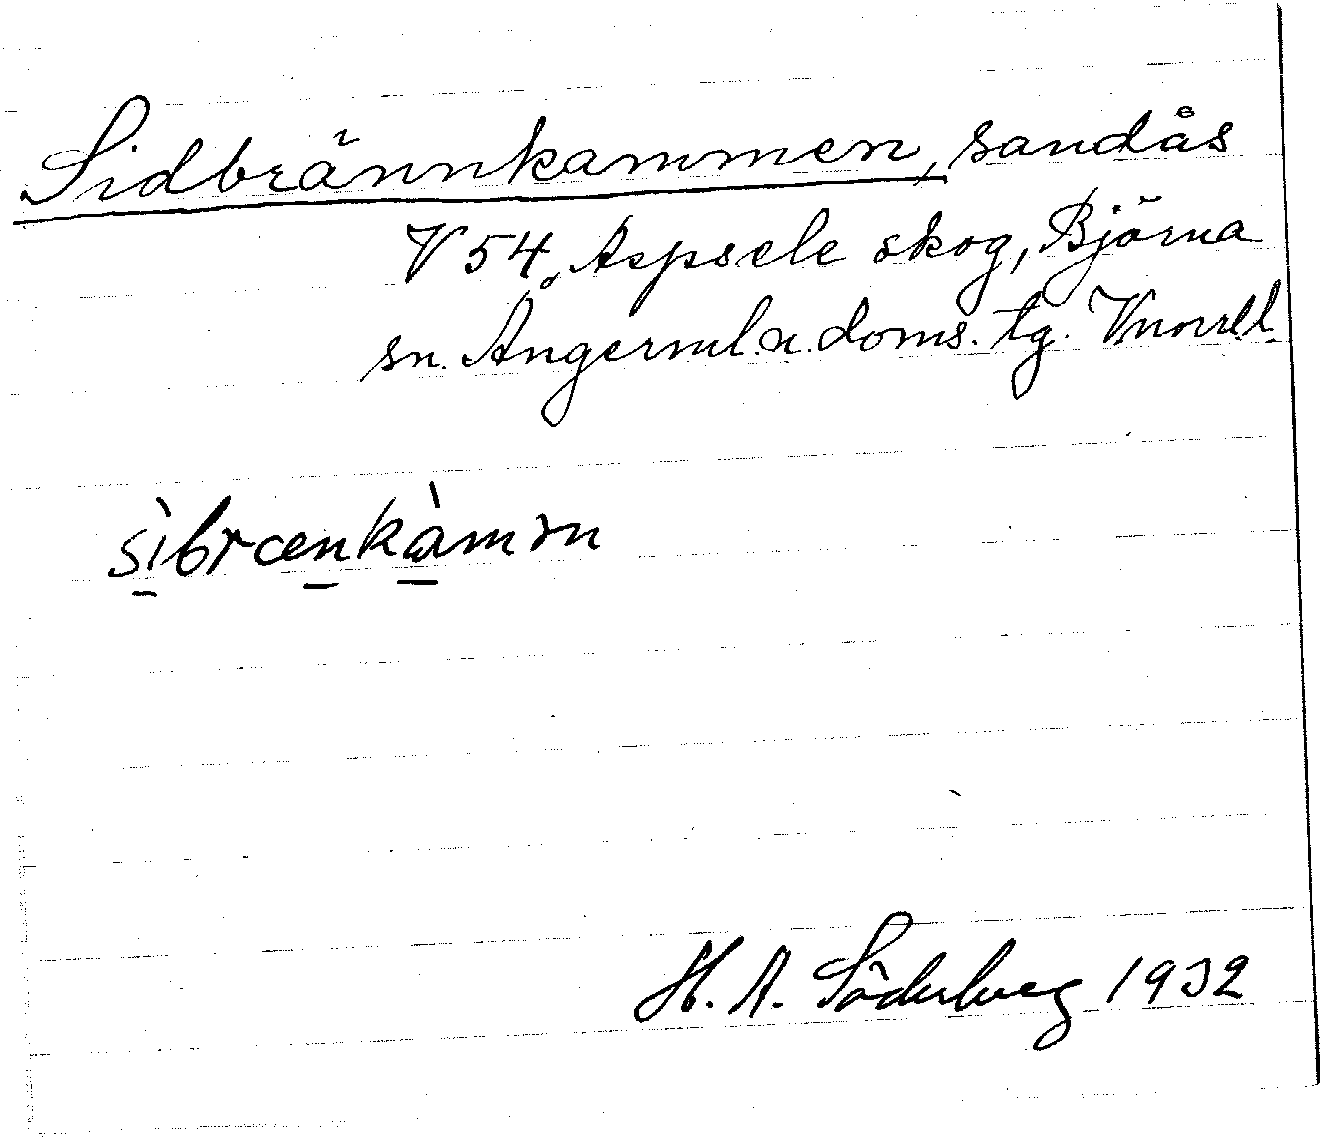 Sidbrännkammen, sandås
V 54, Aspsele skog, Björna
sn. Ångerml.n. doms. tg. Vnorrl.
sìbrænkàmm
H. A. Söderberg 1932